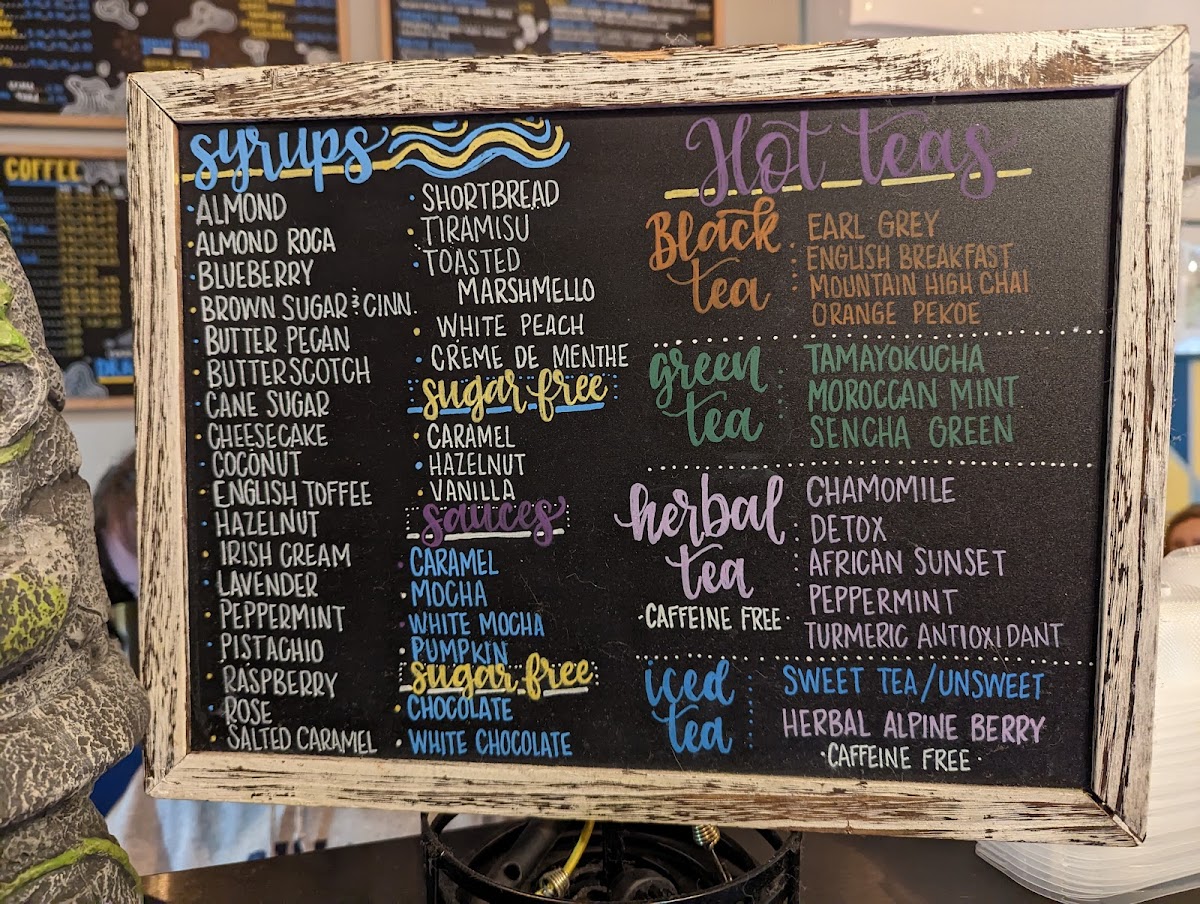 COFFEE
syrups
· ALMOND
· ALMOND ROCA
· BLUEBERRY
· BROWN SUGAR & CINN.
· BUTTER PECAN
· BUTTERSCOTCH
· CANE SUGAR
· CHEESECAKE
· COCONUT
· ENGLISH TOFFEE
· HAZELNUT
· IRISH CREAM
· LAVENDER
· PEPPERMINT
· PISTACHIO
· RASPBERRY
· ROSE
· SALTED CARAMEL
· SHORTBREAD
· TIRAMISU
· TOASTED
MARSHMELLO
· WHITE PEACH
· CRÈME DE MENTHE
sugar free
· CARAMEL
· HAZELNUT
· VANILLA
sauces
· CARAMEL
· MOCHA
· WHITE MOCHA
· PUMPKIN
sugar free
· CHOCOLATE
· WHITE CHOCOLATE
Hot teas
Black
tea
EARL GREY
ENGLISH BREAKFAST
MOUNTAIN HIGH CHAI
ORANGE PEKOE
green
tea
TAMAYOKUCHA
MOROCCAN MINT
SENCHA GREEN
herbal
tea
· CAFFEINE FREE ·
CHAMOMILE
DETOX
AFRICAN SUNSET
PEPPERMINT
TURMERIC ANTIOXIDANT
iced
tea
SWEET TEA/UNSWEET
HERBAL ALPINE BERRY
· CAFFEINE FREE ·